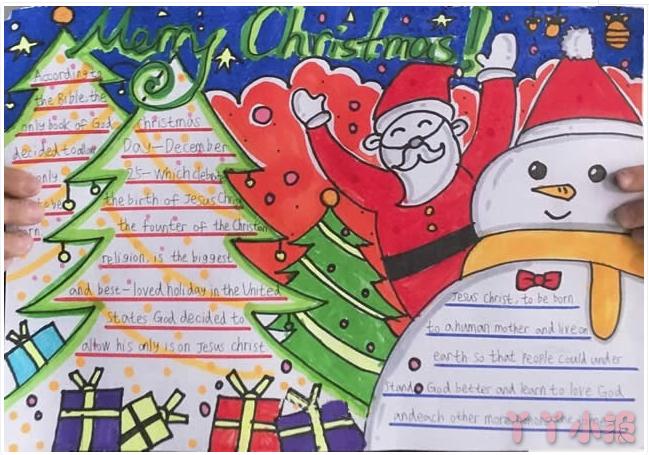 Merry Christmas!
According to
the Bible, the
only book of God
decided to allow
only
to be
christmas
Day—December
25—which celebrate
the birth of Jesus Christ
the founter of the Christian
religion, is the biggest
and best-loved holiday in the United
states God decided to
allow his only is on Jesus christ
Jesus christ, to be born
to a human mother and live on
earth so that people could under
stand God better and learn to love God
andeach other more
丫丫小报